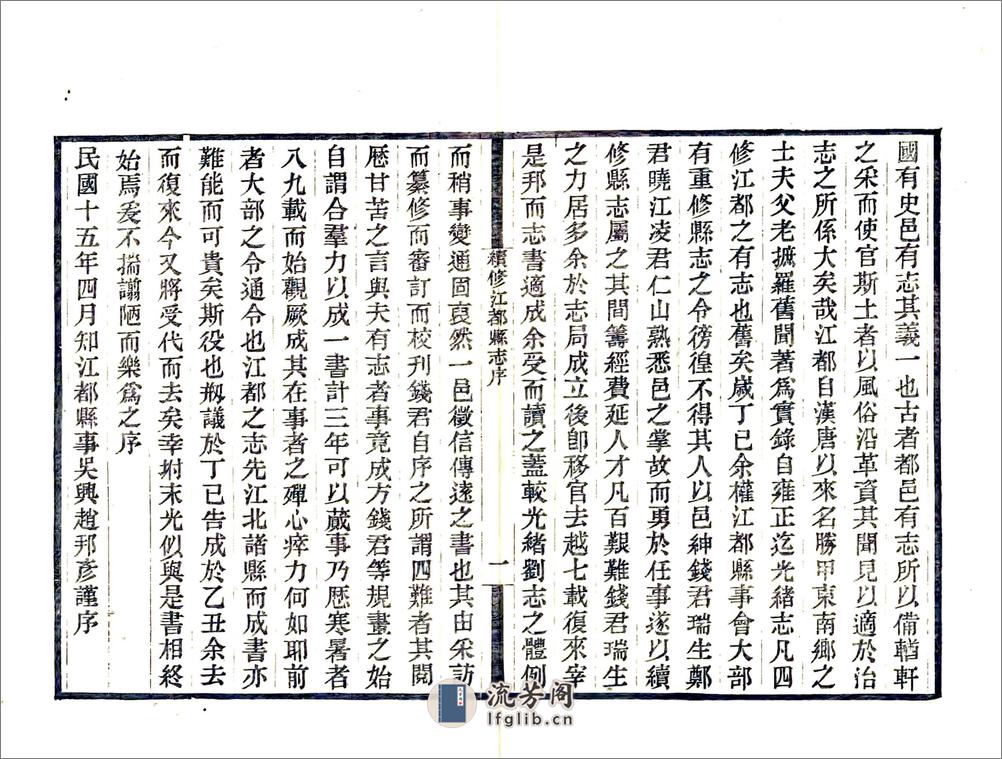 國有史邑有志其義一也古者都邑有志所以備輶軒
之采而使官斯土者以風俗沿革資其聞見以適於治
志之所係大矣哉江都自漢唐以來名勝甲東南鄉之
士夫父老摭羅舊聞著爲實錄自雍正迄光緒志凡四
修江都之有志也舊矣歲丁巳余權江都縣事會大部
有重修縣志之令徬徨不得其人以邑紳錢君瑞生鄭
君曉江凌君仁山熟悉邑之掌故而勇於任事遂以續
修縣志屬之其間籌經費延人才凡百艱難錢君瑞生
之力居多余於志局成立後卽移官去越七載復來宰
是邦而志書適成余受而讀之蓋較光緒劉志之體例
續修江都縣志序
一
而稍事變通固裒然一邑徵信傳遠之書也其由采訪
而纂修而審訂而校刊錢君自序之所謂四難者其閱
歷甘苦之言與夫有志者事竟成方錢君等規畫之始
自謂合羣力以成一書計三年可以蕆事乃歷寒暑者
八九載而始觀厥成其在事者之殫心瘁力何如耶前
者大部之令通令也江都之志先江北諸縣而成書亦
難能而可貴矣斯役也剏議於丁巳告成於乙丑余去
而復來今又將受代而去矣幸坿末光似與是書相終
始焉爰不揣譾陋而樂爲之序
民國十五年四月知江都縣事吳興趙邦彥謹序
流芳阁
lfglib.cn